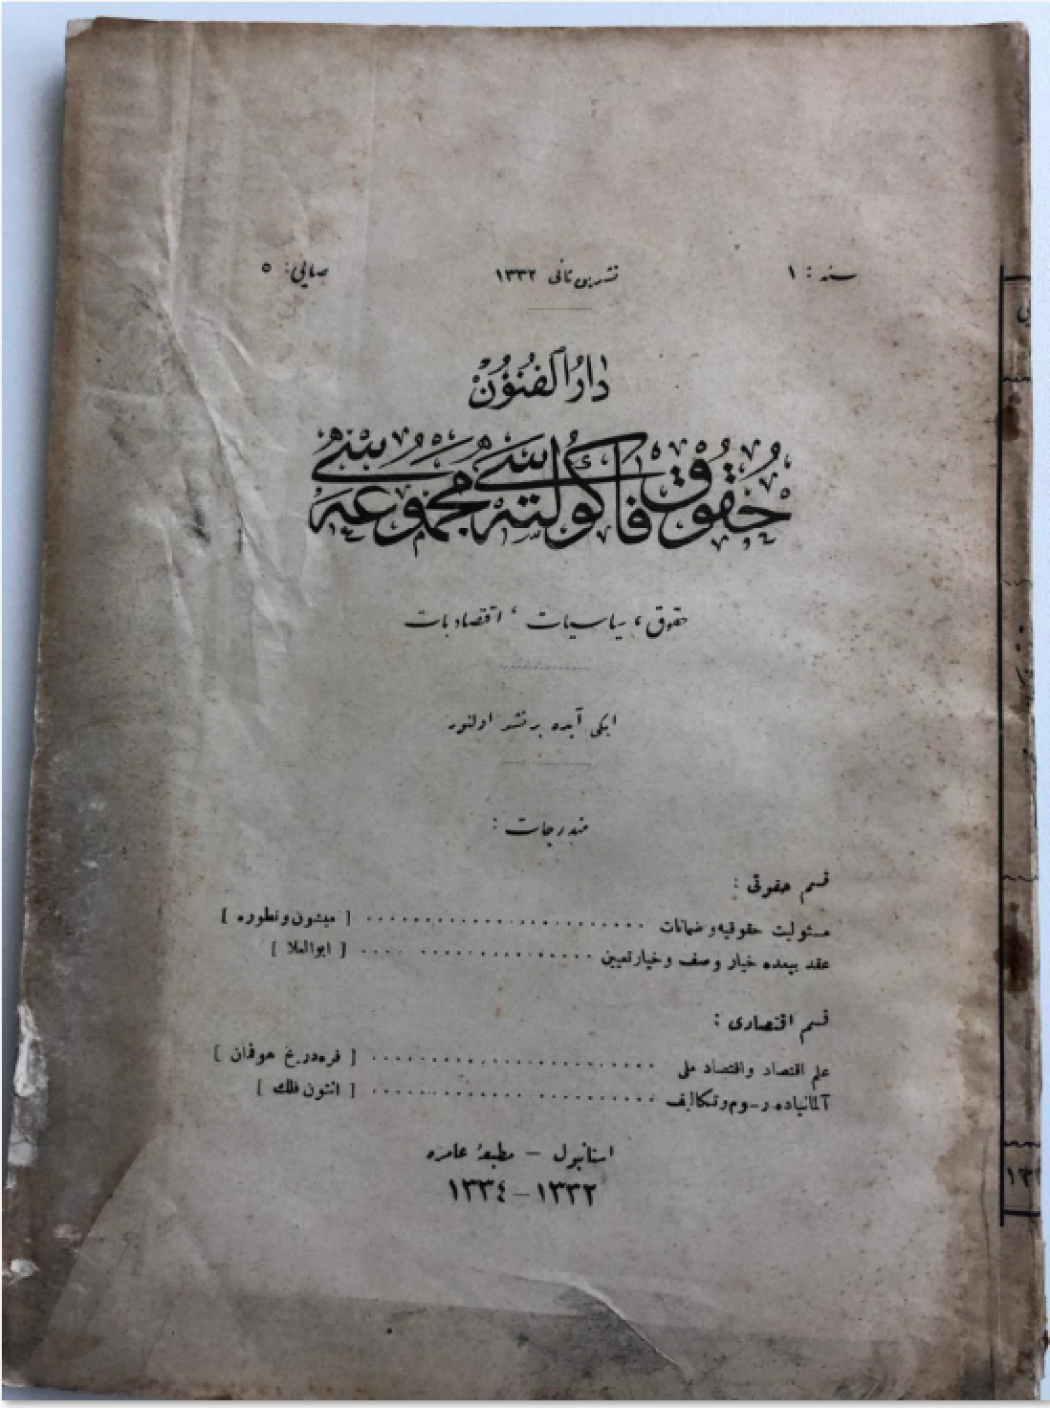 سنه : ١ تشرين ثانى ١٣٣٢ صايى: ٥
دار الفنون
حقوق فاكولته سى مجموعه سى
حقوق ، سياسيات ، اقتصاديات
ايكى آيده بر نشر اولنور
مندرجات :
قسم حقوقى :
مسئوليت حقوقيه و ضمانات [ ميشون ونطوره ]
عقد بيعده خيار وصف و خيار تعيين [ ابوالعلا ]
قسم اقتصادى :
علم اقتصاد و اقتصاد ملى [ فره دريخ هوفمان ]
آلمانياده رسوم و تكاليف [ انتون فلك ]
استانبول – مطبعهٔ عامره
١٣٣٢–١٣٣٤